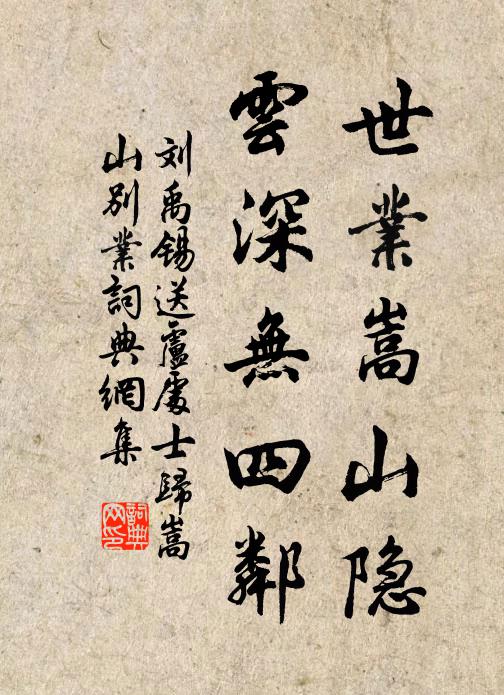 世業嵩山隐
雲深無四鄰
刘禹锡送盧處士歸嵩
山别業詞典網集
詞典
网印